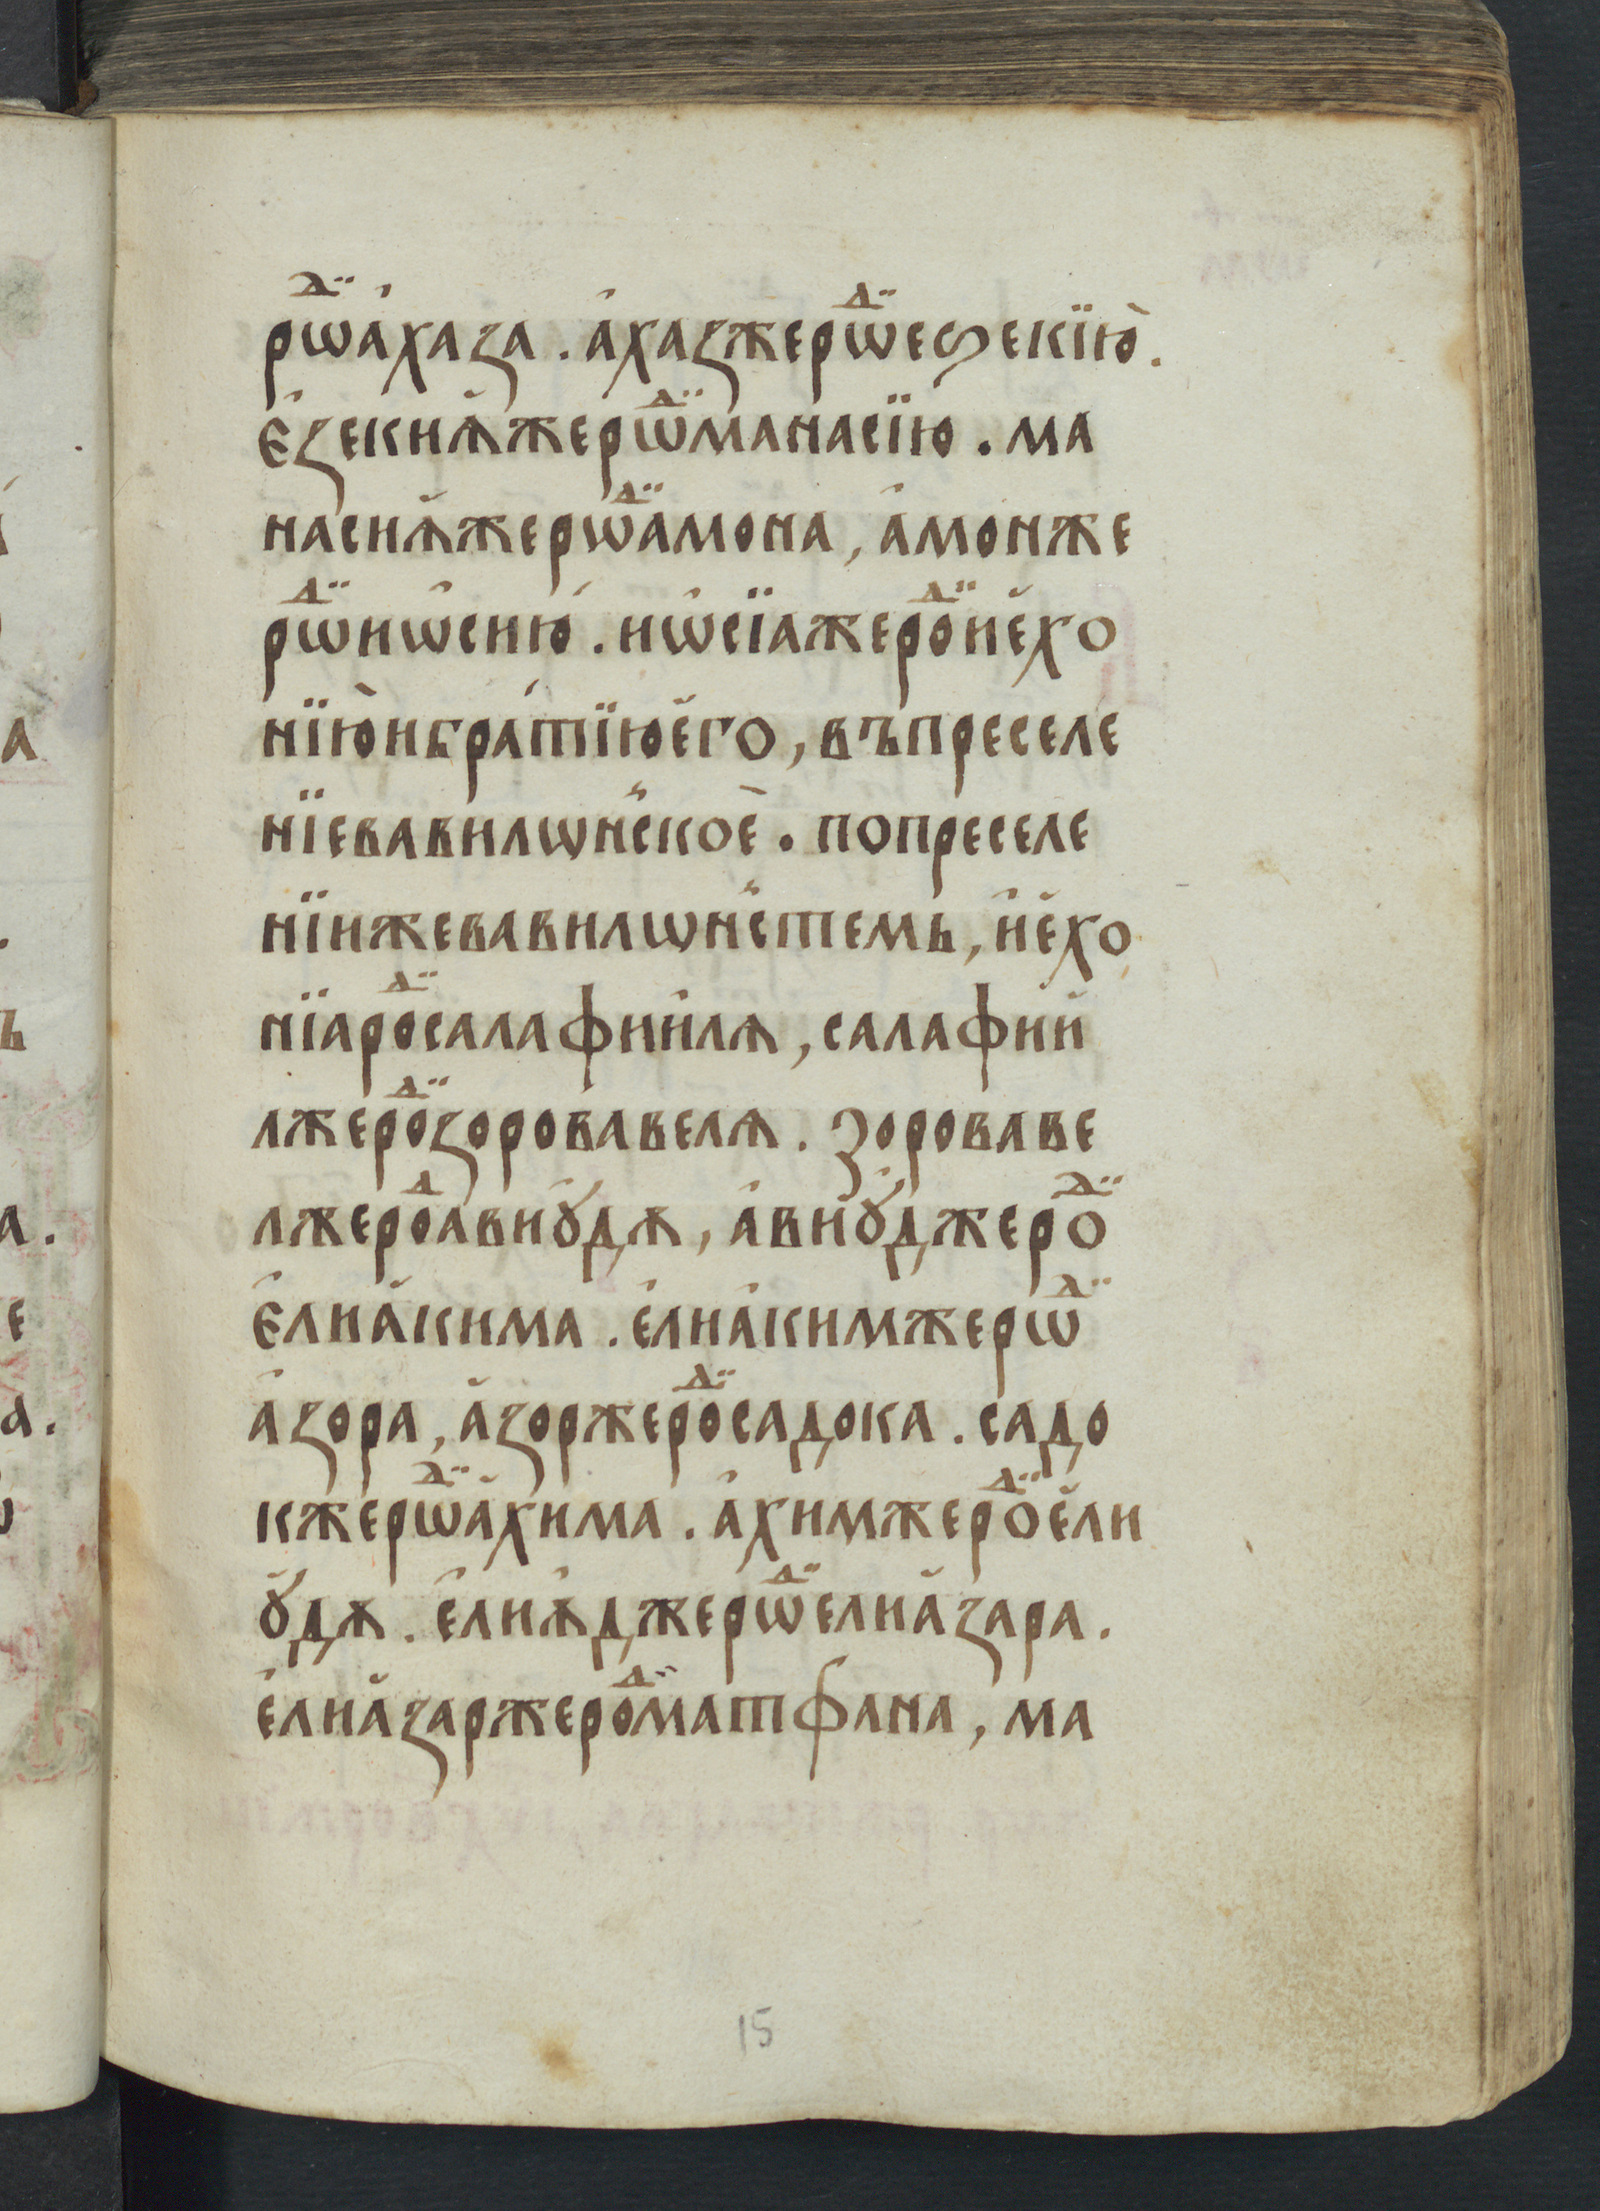 рѡⷣа҆хаза . а҆хазжерѡⷣеѕекїю̀ .
є҆зекиѧ҆жерѡⷣманасїю . ма
насиѧ҆жерѡⷣамона , а҆монже
рѡⷣиѡ҆сию́ . иѡ҆сїажероⷣие҆хо
нїю̀ибра́тїюе҆го , въпреселе
нїевавилѡн҆скоѐ . попреселе
нїижевавилѡн҆стемь , и҆е҆хо
нїароⷣсалафии҆лѧ , салафии҆
лжероⷣзоровавелѧ . зоровавe
лжероⷣа҆виꙋ҆дѧ , а҆виꙋ҆джероⷣ
є҆лиа҆кима . е҆лиа҆кимжерѡⷣ
а҆зора , а҆зоржероⷣсадока . садо
кжерѡⷣа҆хима . а҆химжероⷣе҆ли
ꙋ҆дѧ . е҆лиѧ҆джерѡⷣелиа҆зара .
е҆лиа҆заржероⷣматфана , ма
15